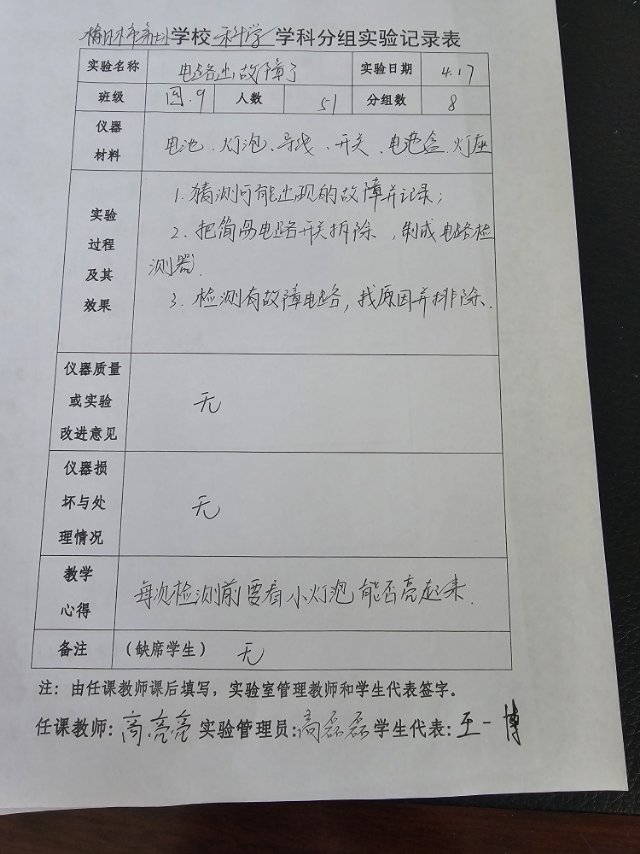 榆林市 学校 科学 学科分组实验记录表
实验名称 电路出故障了 实验日期 4.17
班级 四.9 人数 51 分组数 8
仪器材料 电池、灯泡、导线、开关、电池盒、灯座
实验过程及其效果
1. 猜测可能出现的故障并记录;
2. 把简易电路开关拆除,制成电路检
测器.
3. 检测有故障电路,找原因并排除.
仪器质量或实验改进意见 无
仪器损坏与处理情况 无
教学心得 每次检测前要看小灯泡能否亮起来.
备注 (缺席学生) 无
注:由任课教师课后填写,实验室管理教师和学生代表签字。
任课教师: 高亮亮 实验管理员: 高磊磊 学生代表: 王一博